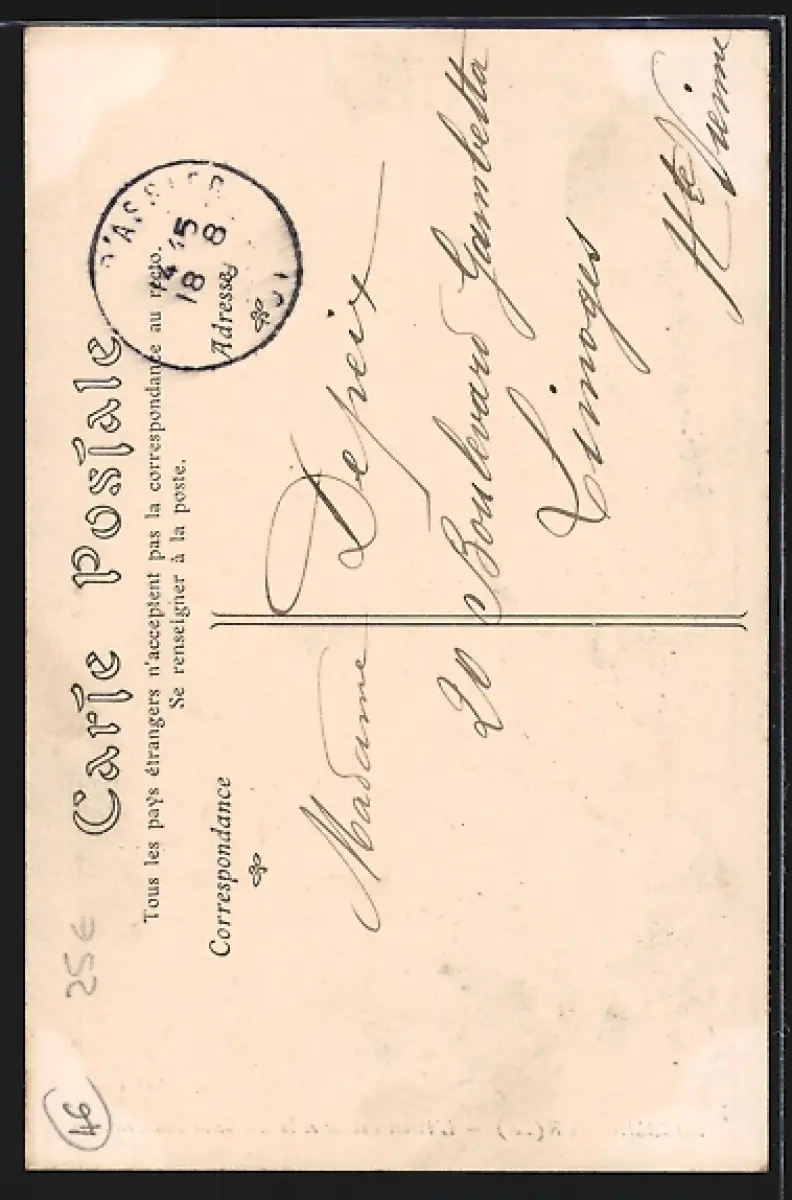 Carte Postale
Tous les pays étrangers n'acceptent pas la correspondance au recto.
Se renseigner à la poste.
Correspondance
Adresse
ASSIER
15
18 8
Madame Depeix
20 Boulevard Gambetta
Limoges
Hte Vienne
25€
46